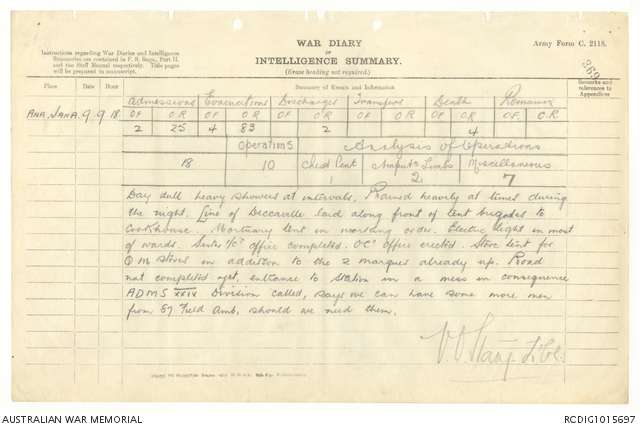 WAR DIARY
OF
INTELLIGENCE SUMMARY.
(Erase heading not required.)
Army Form C. 2118.
Instructions regarding War Diaries and Intelligence
Summaries are contained in F. S. Regs., Part II.
and the Staff Manual respectively. Title pages
will be prepared in manuscript.
369
Place Date Hour Summary of Events and Information Remarks and references to Appendices
Admissions Evacuations Discharges Transfers Death Remaing
OF OR OF OR OF OR OF OR OF OR OF O.R
ANA. JANA. 9.9.18. 2 25 4 83 2 4
Operations Analysis of Operations
18 10 Chest Cent 1 Amputn Limbs 2 Miscellaneous 7
Day dull heavy showers at intervals. Rained heavily at times during
the night. Line of Deccaville laid along front of tent brigades to
Cookhouse. Mortuary tent in working order. Electric light in most
of wards. Sister I/C's office completed. OC's office erected. Store tent for
QM stores in addition to the 2 marquees already up. Road
not completed yet, entrance to Station in a mess in consequence
ADMS XXIX Division called, says we can have some more men
from 87 Field Amb, should we need them.
AUSTRALIAN WAR MEMORIAL
RCDIG1015697